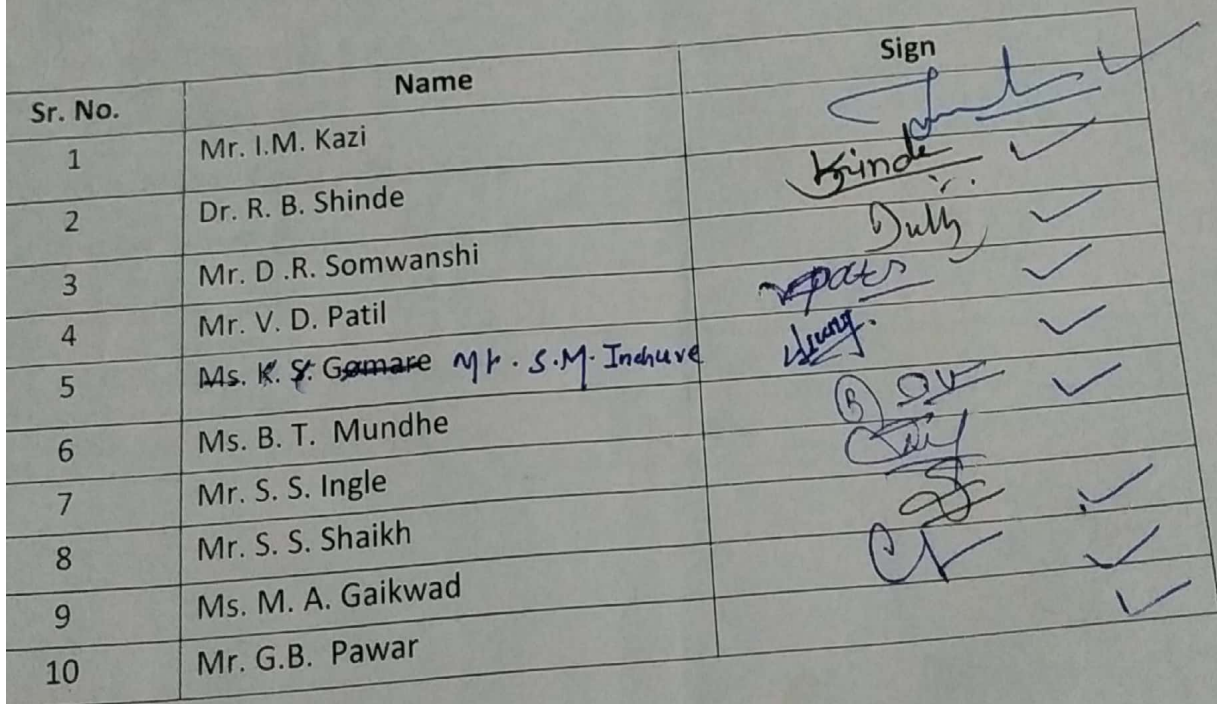 Sr. No. Name Sign
1 Mr. I.M. Kazi
2 Dr. R. B. Shinde
3 Mr. D .R. Somwanshi
4 Mr. V. D. Patil
5 Ms. K. S. Gomare Mr. S.M. Inchure
6 Ms. B. T. Mundhe
7 Mr. S. S. Ingle
8 Mr. S. S. Shaikh
9 Ms. M. A. Gaikwad
10 Mr. G.B. Pawar